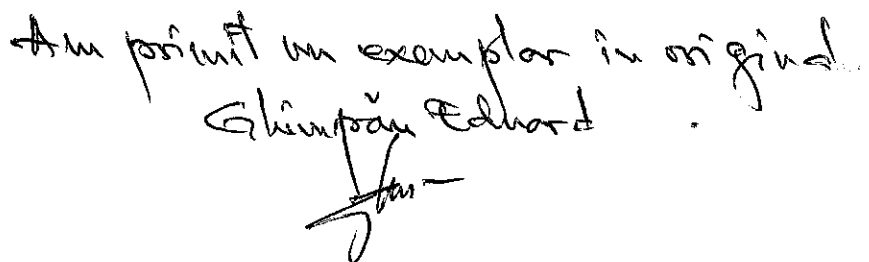 Am primit un exemplar in original
Ghimpău Eduard